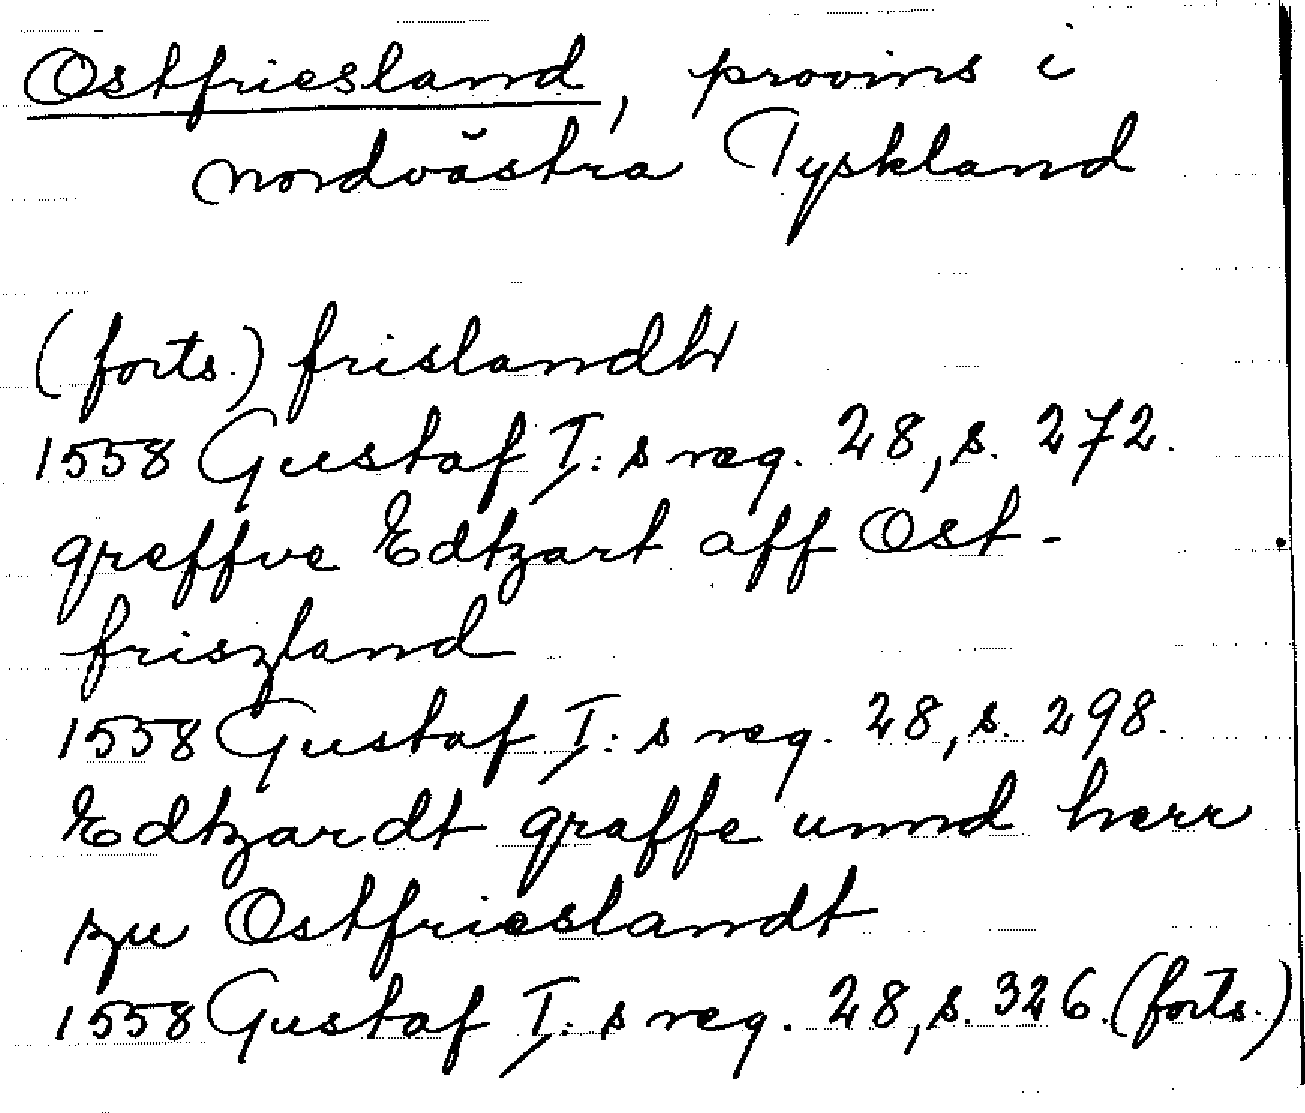 Ostfriesland, provins i
nordvästra Tyskland
(forts.) frislandh
1558 Gustaf I:s reg. 28, s. 272.
greffve Edtzart aff Ost-
friszland
1558 Gustaf I:s reg. 28, s. 298.
Edtzardt graffe unnd herr
zu Ostfrieslandt
1558 Gustaf I:s reg. 28, s. 326. (forts.)